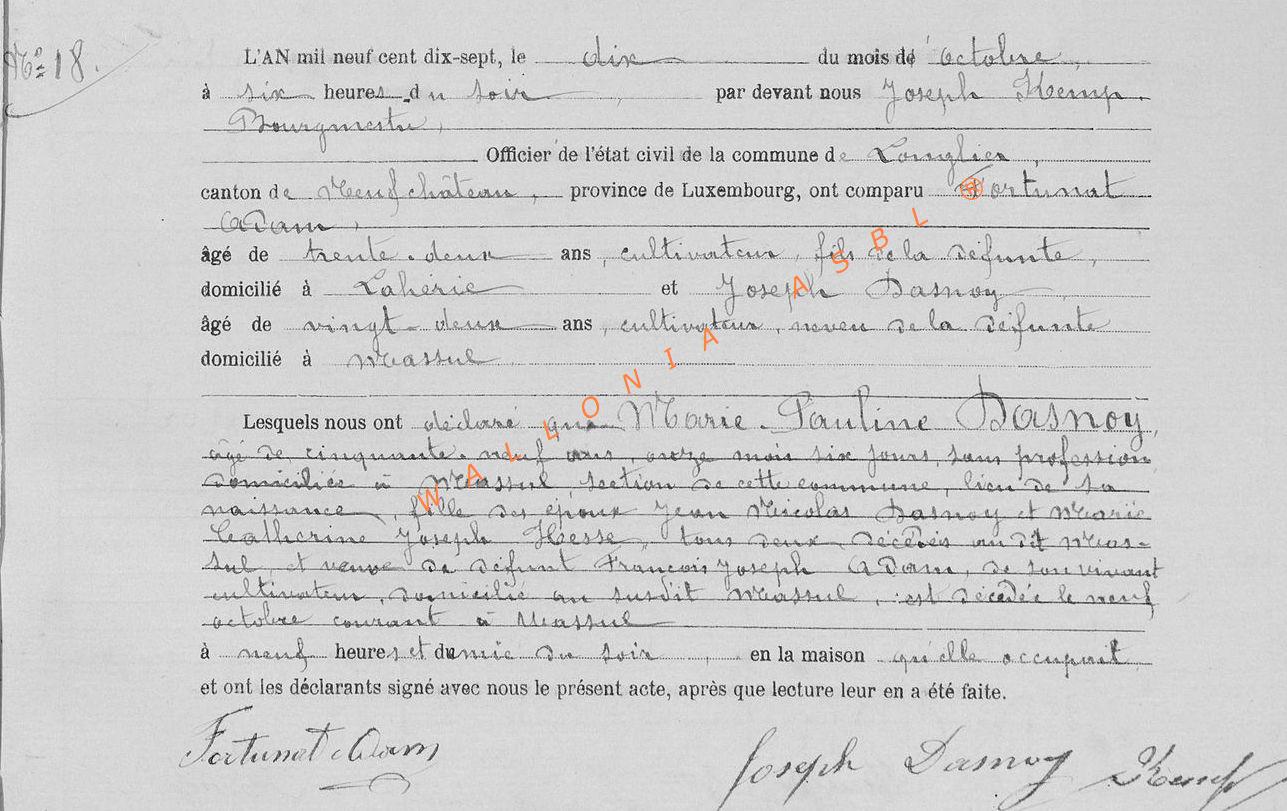 N° 18.
L'AN mil neuf cent dix-sept, le dix du mois de octobre,
à six heures du soir, par devant nous Joseph Kemp.
Bourgmestre,
Officier de l'état civil de la commune de Longlier,
canton de Neufchâteau, province de Luxembourg, ont comparu Fortunat
Adam,
âgé de trente-deux ans, cultivateur, fils de la défunte,
domicilié à Lahérie et Joseph Dasnoy,
âgé de vingt-deux ans, cultivateur, neveu de la défunte
domicilié à Massul
Lesquels nous ont déclaré que Marie-Pauline Dasnoy,
âgé de cinquante-neuf ans, onze mois six jours, sans profession
domiciliée à Massul, section de cette commune, lieu de sa
naissance, fille des époux Jean Nicolas Dasnoy et Marie
Catherine Joseph Hesse, tous deux décédés au dit Mas-
sul, et veuve de défunt François Joseph Adam, de son vivant
cultivateur, domicilié au susdit Massul, est décédée le neuf
octobre courant à Massul
à neuf heures et demie du soir, en la maison qu'elle occupait
et ont les déclarants signé avec nous le présent acte, après que lecture leur en a été faite.
Fortunat Adam
Joseph Dasnoy Kemp
WALLONIA ASBL